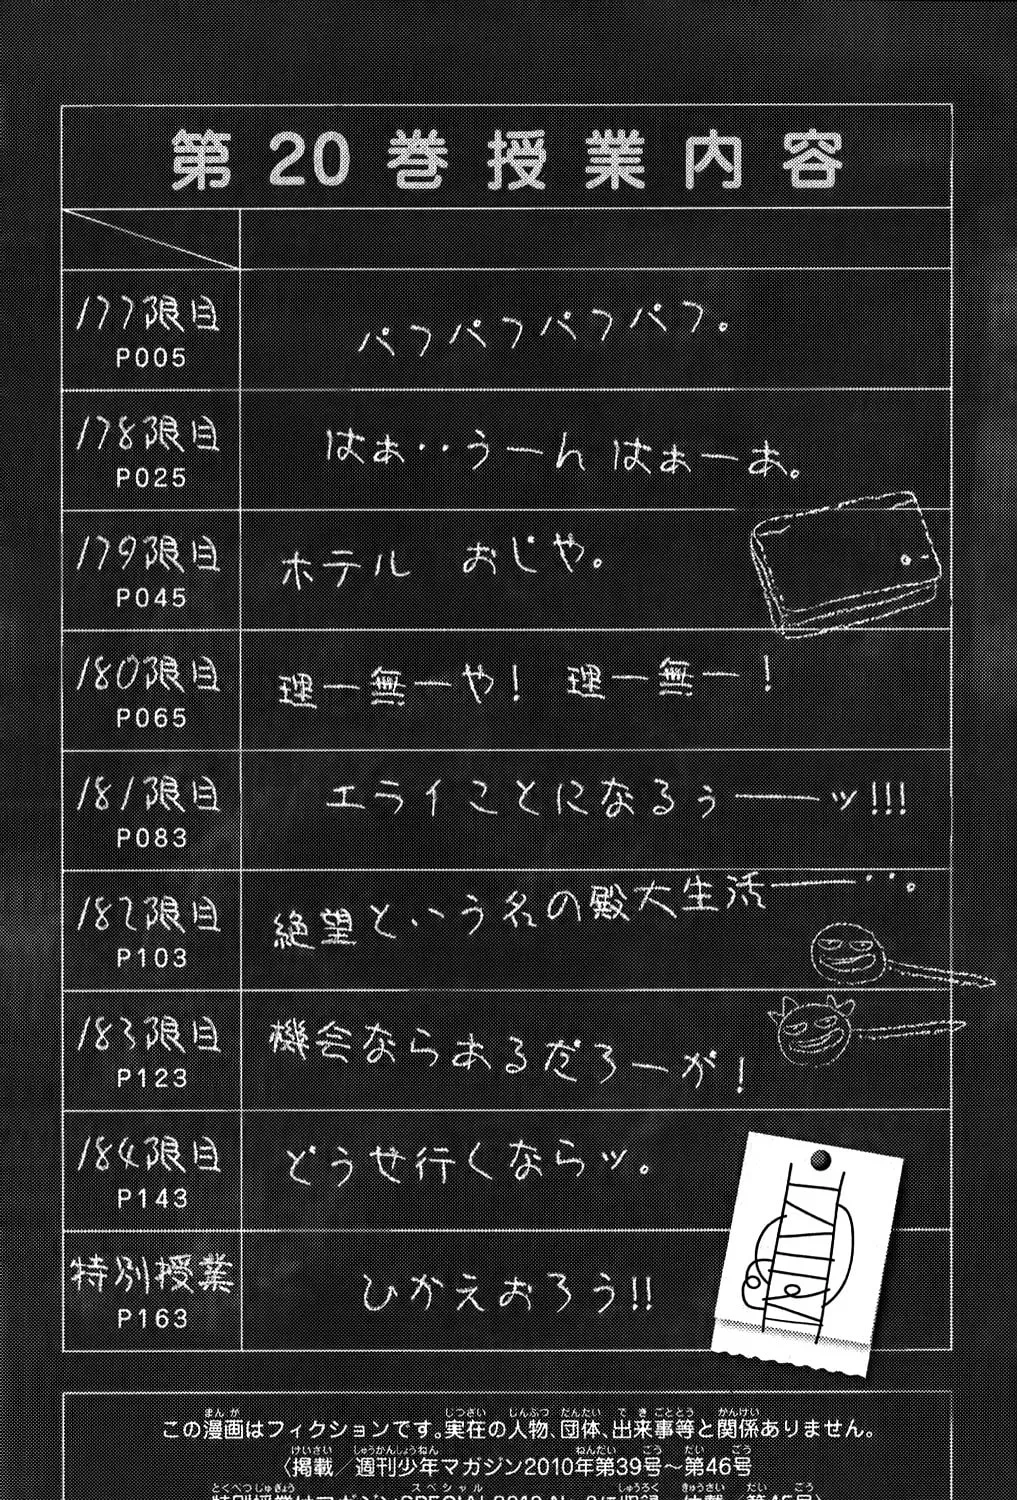 第20巻授業内容
177限目
P005
パフパフパフパフ。
178限目
P025
はぁ‥うーん はぁーあ。
179限目
P045
ホテル おじや。
180限目
P065
理一無一や! 理一無一!
181限目
P083
エライことになるぅ――ッ!!!
182限目
P103
絶望という名の殿大生活――‥。
183限目
P123
機会ならあるだろーが!
184限目
P143
どうせ行くならッ。
特別授業
P163
ひかえおろう!!
この漫画はフィクションです。実在の人物、団体、出来事等と関係ありません。
〈掲載/週刊少年マガジン2010年第39号〜第46号